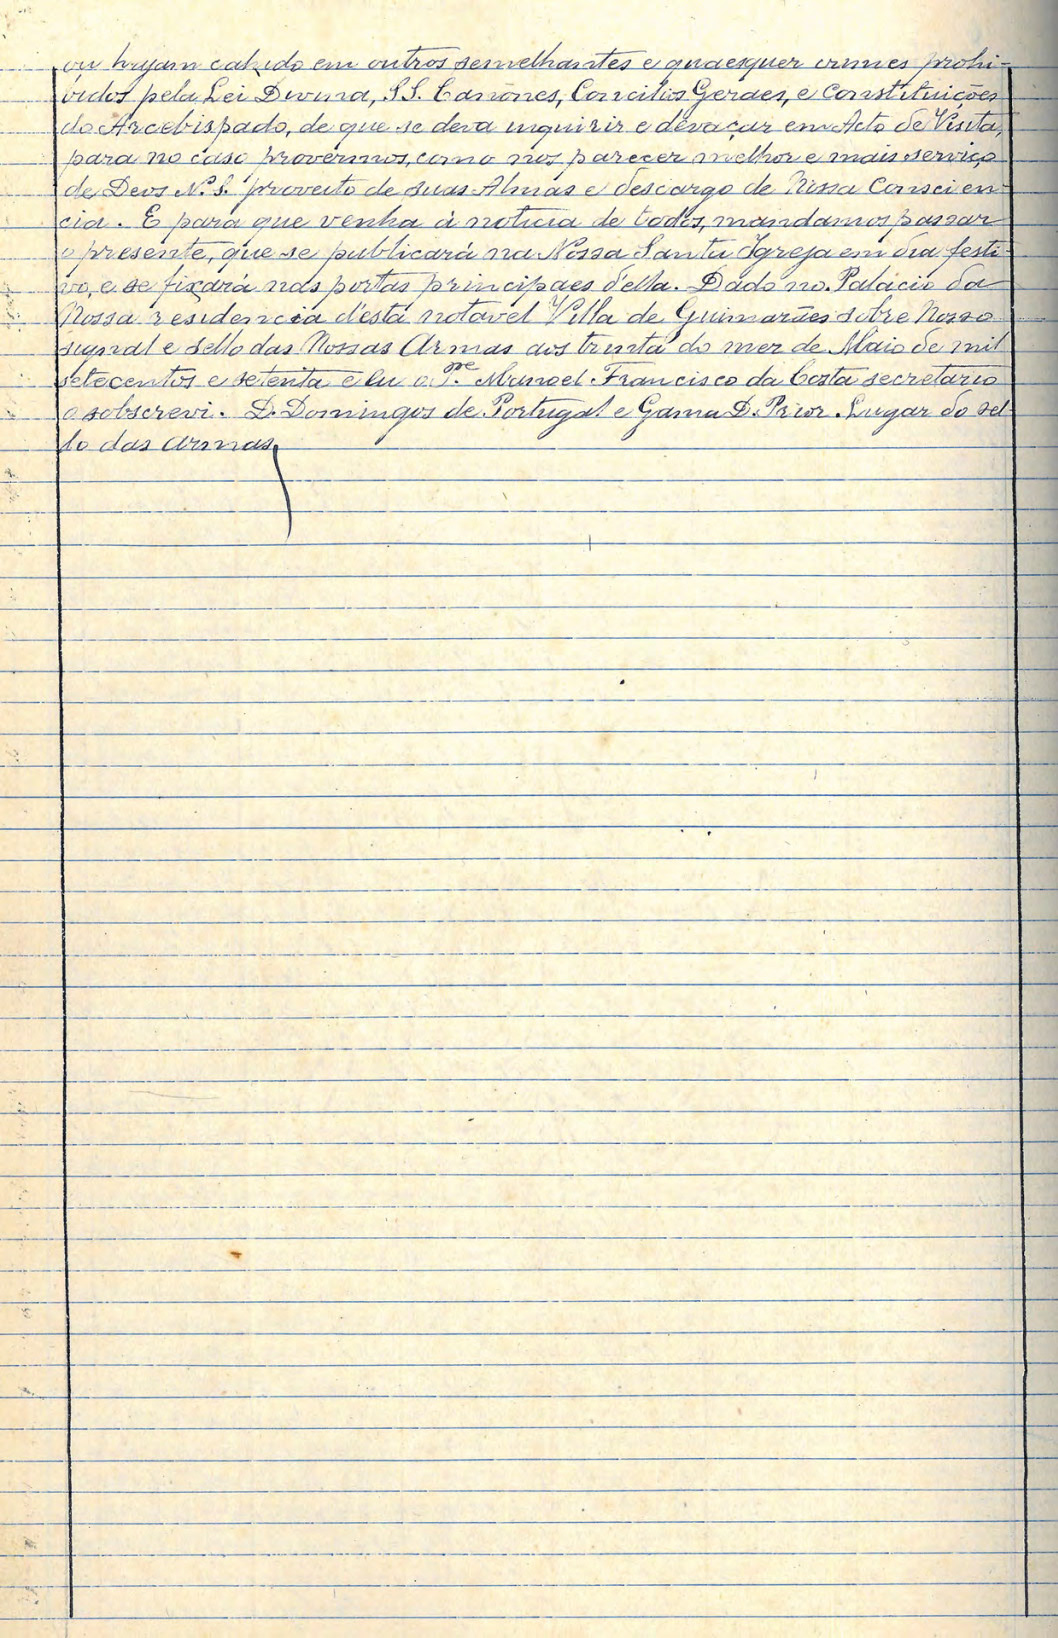 ou hajam cahido em outros semelhantes e quaesquer crimes prohi-
bidos pela Lei Divina, S.S. Canônes, Concilios Geraes, e Constituições
do Arcebispado, de que se deva inquirir e devaçar em Acto de Visita,
para no caso provermos, como nos parecer melhor e mais serviço
de Deos N.º S. proveito de suas Almas e descargo de Nossa Conscien-
cia. E para que venha á noticia de todos, mandamos passar
o presente, que se publicará na Nossa Santa Igreja em dia festi-
vo, e se fixará nas portas principaes della. Dado no Palacio da
Nossa residencia d'esta notavel Villa de Guimarães sobre Nosso
signal e sello das Nossas Armas aos trinta do mez de Maio de mil
setecentos e setenta e Eu o P.re Manoel Francisco da Costa secretario
o sobscrevi. D. Domingos de Portugal e Gama D. Prior. Lugar do sel-
lo das armas